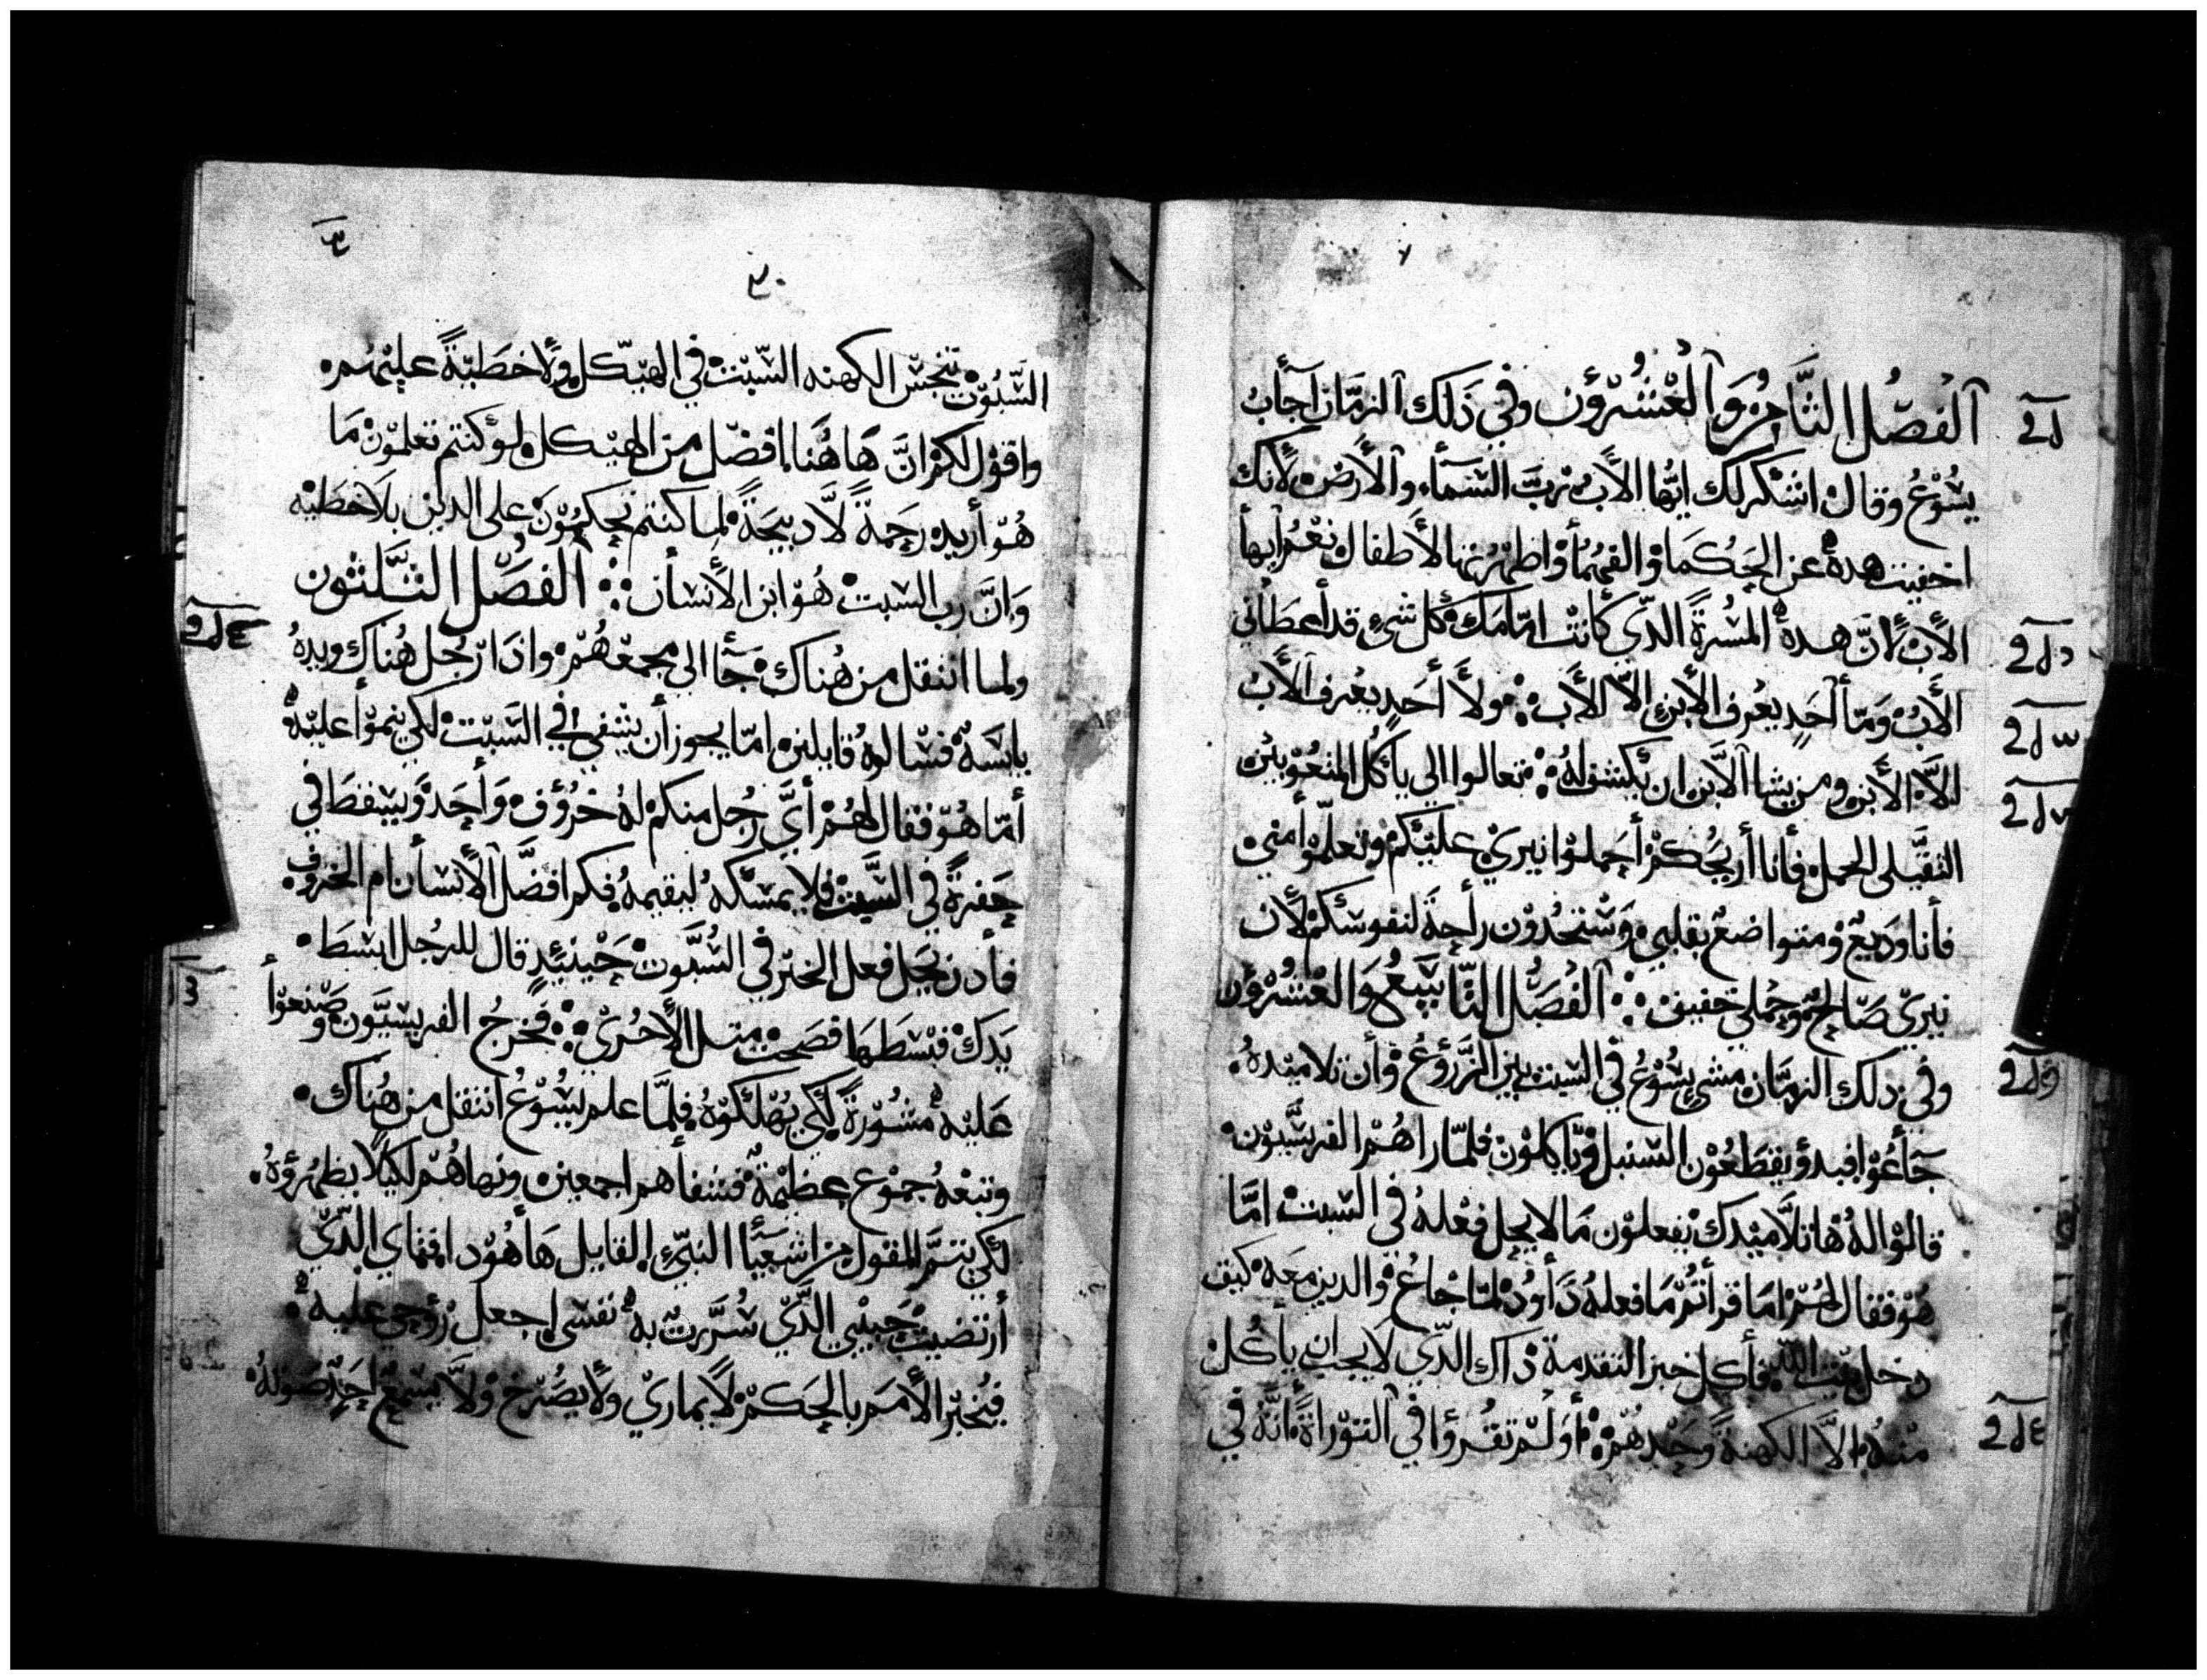 الفصل الثامن والعشرون وفي ذلك الزمان اجاب
يسوع وقال اشكرلك ايها الاب رب السماء والارض لانك
اخفيت هده عن الحكما والفهما واظهرتها الاطفال نعم ايها
الاب لان هده المسرة الدي كانت امامك كل شي قد اعطاني
الاب وما أحد يعرف الابن الا الاب ولا أحد يعرف الاب
الا الابن ومن يشا الابن ان يكشف له تعالوا الي يا كل المتعوبين
الثقيلى الحمل فأنا أريحكم أحملوا نيري عليكم وتعلموا مني
فأنا وديع ومتواضع بقلبي وستجدون راحة لنفوسكم لان
نيري صالح وحملي خفيف الفصل التاسع والعشرون
وفي دلك الزمان مشي يسوع في السبت بين الزروع وأن تلاميده
جاعوا فبدو يقطعون السنبل وياكلون فلما راهم الفريسيون
قالوا له ها تلاميدك يفعلون ما لا يحل فعله في السبت اما
هو فقال لهم اما قرأتم ما فعله داود لما جاع والدين معه كيف
دخل بيت الله فأكل خبز التقدمة داك الدي لا يجب ان يأكل
منه الا الكهنة وحدهم أولم تقرؤا في التوراة انه في
٣٠
السبوت تنجس الكهنه السبت في الهيكل ولا خطية عليهم
واقول لكم ان هاهنا افضل من الهيكل ولو كنتم تعلمون ما
هو أريد رحمة لا دبيحة لما كنتم تحكمون على الدين بلا خطيه
وان رب السبت هو ابن الانسان الفصل الثلثون
ولما انتقل من هناك جا الى مجمعهم وادا رجل هناك ويده
يابسة فسالوه قايلين اما يجوز أن يشفى في السبت لكي ينموا عليه
أما هو فقال لهم أي رجل منكم له خروف واحد ويسقط في
حفرة في السبت فلا يمسكه ليقيمه فكم افضل الانسان ام الخروف
فأدن يحل فعل الخير في السبوت حينيد قال للرجل ابسط
يدك فبسطها فصحت متل الاخرى فخرج الفريسيون وصنعوا
عليه مشورة لكي يهلكوه فلما علم يسوع انتقل من هناك
وتبعه جموع عظيمة فشفاهم اجمعين ونهاهم لكيلا يظهروه
لكي يتم المقول من اشعيا النبي القايل ها هود افتاي الدي
أرتضيت حبيبي الدي سررت به نفسي اجعل روحي عليه
فيخبر الامم بالحكم لا يماري ولا يصرخ ولا يسمع احد صوته